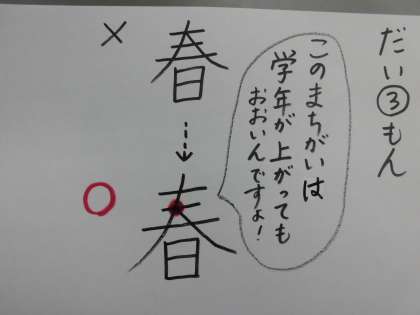 だい③もん
このまちがいは
学年が上がっても
おおいんですよ！
×
春
○
春